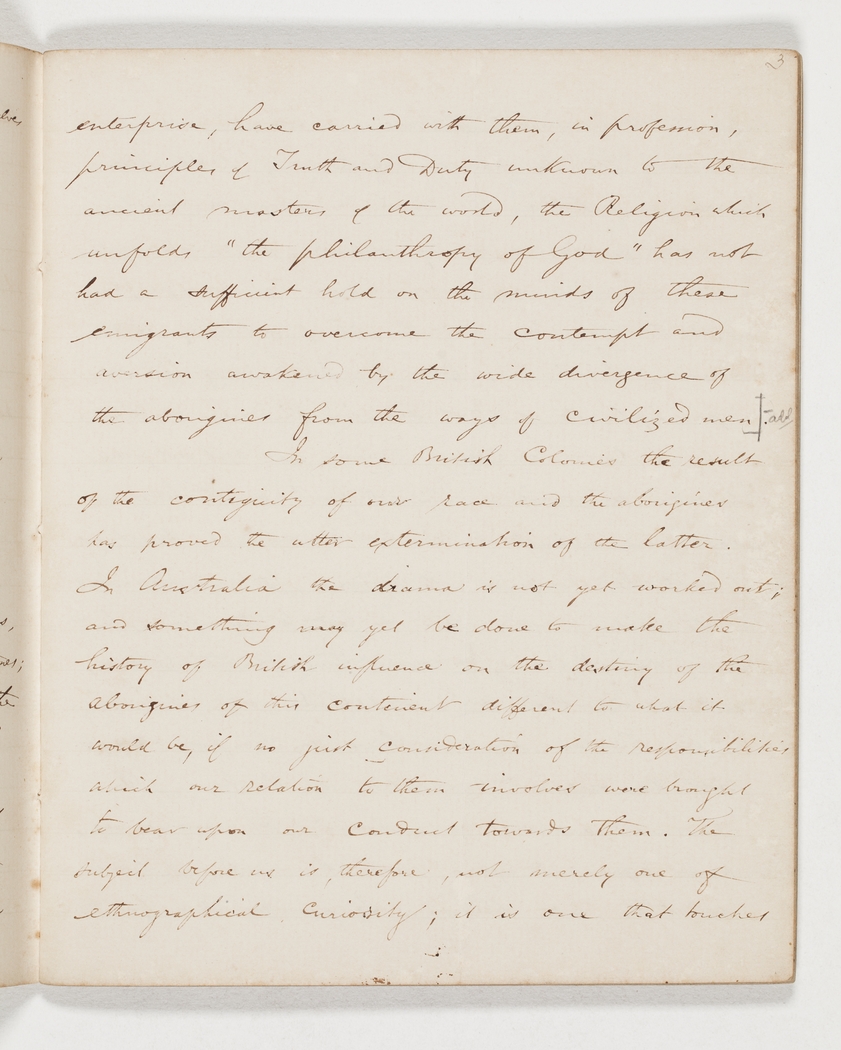 3
enterprise, have carried with them, in profession,
principles of Truth and Duty unknown to the
ancient masters of the world, the Religion which
unfolds "the philanthropy of God" has not
had a sufficient hold on the minds of these
emigrants to overcome the contempt and
aversion awakened by the wide divergence of
the aborigines from the ways of civilized men].
In some British Colonies the result
of the contiguity of our race and the aborigines
has proved the utter extermination of the latter.
In Australia the drama is not yet worked out;
and something may yet be done to make the
history of British influence on the destiny of the
aborigines of this continent different to what it
would be, if no just consideration of the responsibilities
which our relation to them involves were brought
to bear upon our conduct towards them. The
subject before us is, therefore, not merely one of
ethnographical curiosity; it is one that touches